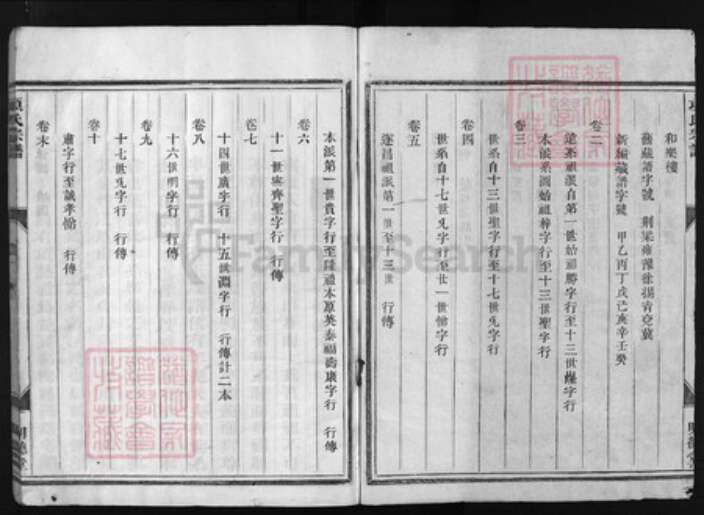 和樂樓
舊藏譜字號 荆梁雍豫徐揚青兗冀
新編藏譜字號 甲乙丙丁戊己庚辛壬癸
卷二
遂昌祖派自第一世始祖勝字行至十三世 字行
本派系圖始祖梓字行至十三世聖字行
卷三
世系自十三世聖字行至十七世 字行
卷四
世系自十七世 字行至廿一世 字行
卷五
遂昌祖派第一世至十三世 行傳
本派第一世貴字行至 禮本原英泰福壽康字行 行傳
卷六
十一世 齊聖字行 行傳
卷七
十四世廣字行 十五世淵字行 行傳計二本
卷八
十六世明字行 行傳
卷九
十七世 字行 行傳
卷十
肅字行至誠孝 行傳
卷末
氏宗譜
明德堂
FamilySearch